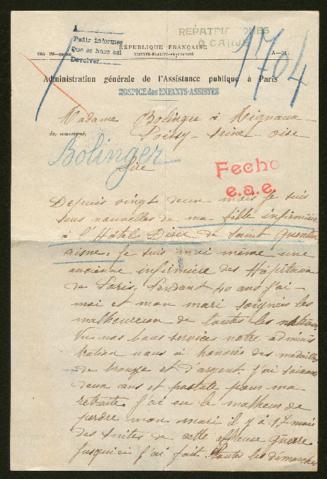 A
Pedir informes
Que se hace así
Devolver
REPATRI
1704
RÉPUBLIQUE FRANÇAISE
LIBERTÉ-ÉGALITÉ-FRATERNITÉ
Administration générale de l'Assistance publique à Paris
HOSPICE des ENFANTS-ASSISTÉS
Madame Bolinger à Mignaux
Poissy - Seine Oise
Bolinger
Sire
Fecho
e.a.e.
Depuis vingt deux mois je suis
sans nouvelles de ma fille infirmière
à l'Hôtel Dieu de Saint Quentin
aisne. Je suis moi même une
ancienne infirmière des Hôpitaux
de Paris, Pendant 40 ans j'ai
moi et mon mari soignés les
malheureux de toutes les nations
Vu nos bons services notre adminis
tration nous à honorés des médailles
de bronze et d'argent. J'ai soixante
deux ans et postule pour ma
retraite. J'ai eu le malheur de
perdre mon mari il y à 17 mois
des suites de cette affreuse guerre
jusqu'ici j'ai fait toutes les démarches